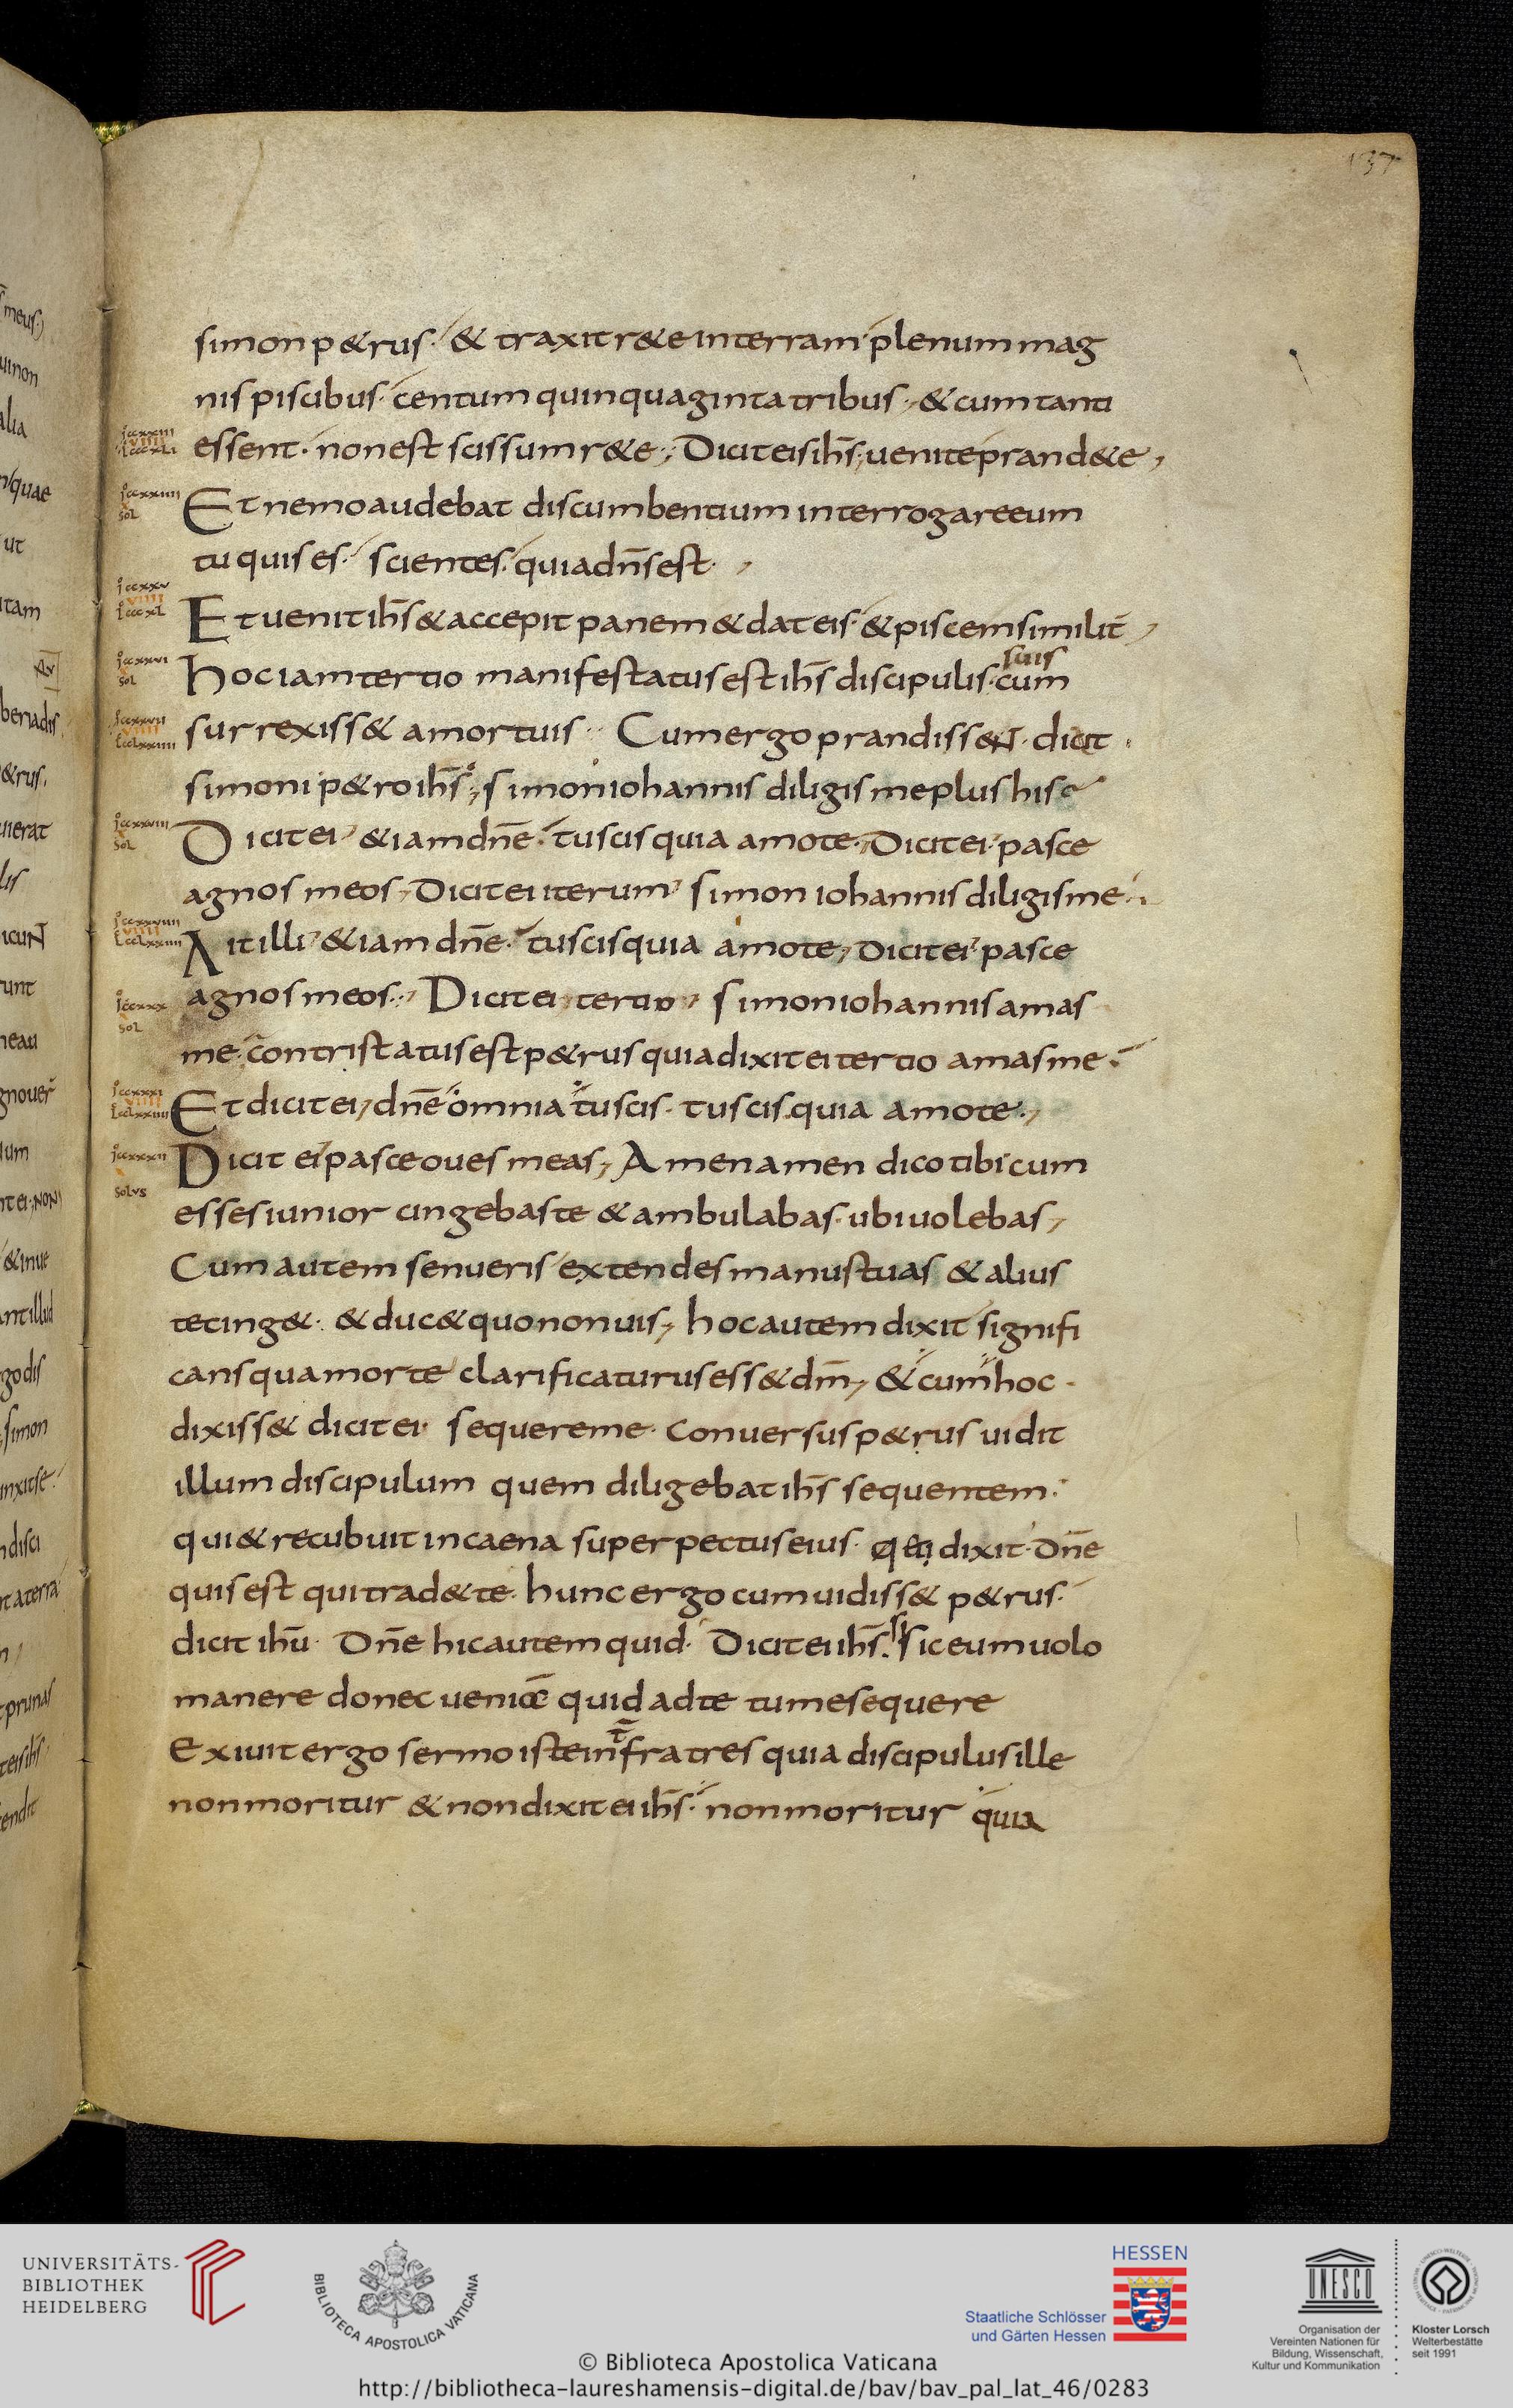 137
simon p&rus. & traxit r&e in terram. plenum mag
nis piscibus. centum quinquaginta tribus. & cum tanti
essent. non est scissum r&e; Dicit eis ih̄s; uenite prand&e,
Et nemo audebat discumbentium interrogare eum
tu quis es. scientes. quia dn̄s est.
Et uenit ih̄s & accepit panem & dat eis. & piscem similit̄
suis
hoc iam tertio manifestatus est ih̄s discipulis. cum
surrexiss& a mortuis. Cum ergo prandiss&N. dicit.
simoni p&ro ih̄s; simon iohannis diligis me plus his
Dicit ei &iam dn̄e. tu scis quia amo te. Dicit ei. pasce
agnos meos, Dicit ei iterum simon iohannis diligis me.
Ait illi &iam dn̄e. tu scis quia amo te, Dicit ei pasce
agnos meos. Dicit ei tertio, simon iohannis amas
me. contristatus est p&rus quia dixit ei tertio amas me.
Et dicit ei, dn̄e omnia tu scis. tu scis quia amo te.,
Dicit ei pasce oues meas, Amen amen dico tibi cum
esses iunior cingebas te & ambulabas. ubi uolebas,
Cum autem senueris extendes manus tuas & alius
te cing&. & duc& quo non uis, hoc autem dixit signifi
cans qua morte clarificaturus ess& dm̄, & cum hoc.
dixiss& dicit ei sequere me. Conuersus p&rus uidit
illum discipulum quem diligebat ih̄s sequentem.
qui & recubuit in caena super pectus eius. dixit. Dn̄e
quis est qui trad& te. hunc ergo cum uidiss& p&rus.
dicit ih̄u. Dn̄e hic autem quid. Dicit ei ih̄s. sic eum uolo
manere donec uenio quid ad te tu me sequere
Exiuit ergo sermo iste int̄ fratres quia discipulus ille
non moritur & non dixit ei ih̄s. non moritur quia
sol
sol
sol
sol
solvs
UNIVERSITÄTS-
BIBLIOTHEK
HEIDELBERG
BIBLIOTECA APOSTOLICA VATICANA
HESSEN
Staatliche Schlösser
und Gärten Hessen
UNESCO
Organisation der
Vereinten Nationen für
Bildung, Wissenschaft,
Kultur und Kommunikation
Kloster Lorsch
Welterbestätte
seit 1991
© Biblioteca Apostolica Vaticana
http://bibliotheca-laureshamensis-digital.de/bav/bav_pal_lat_46/0283